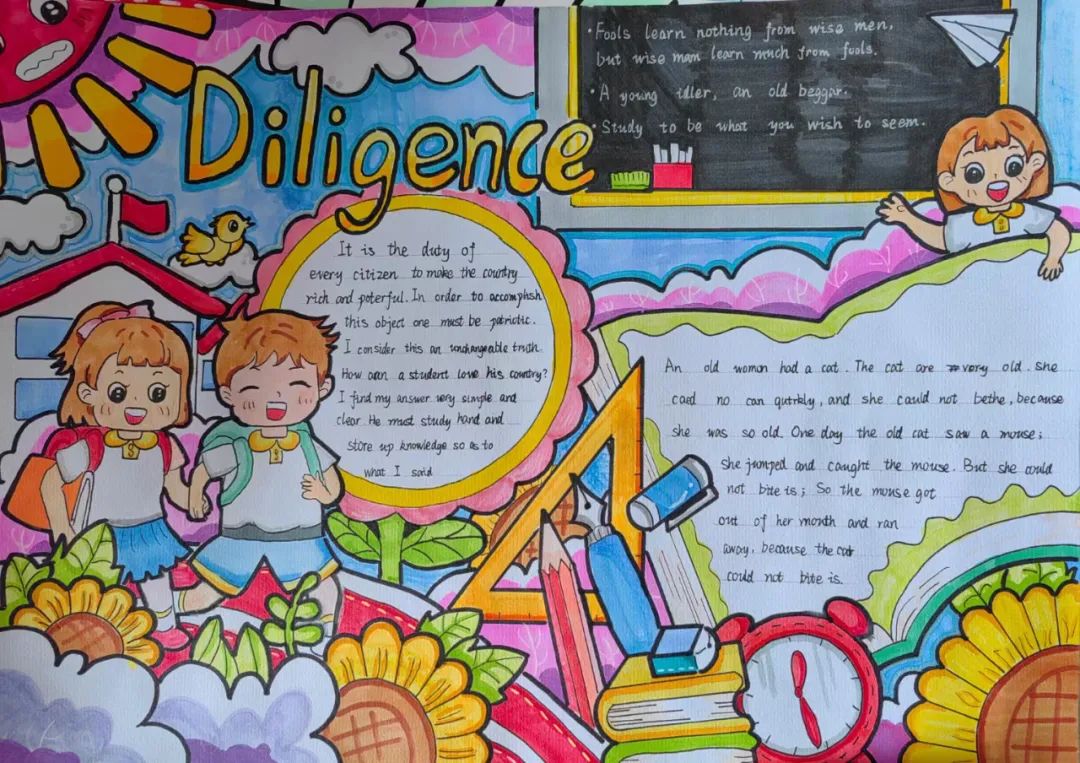 Diligence
· Fools learn nothing from wise men,
but wise man learn much from fools.
· A young idler, an old beggar.
· Study to be what you wish to seem.
It is the duty of
every citizen to make the country
rich and poterful. In order to accomplish
this object one must be patriotic.
I consider this an unchangeable truth
How can a student love his country?
I find my answer very simple and
clear. He must study hand and
store up knowledge so as to
what I said
An old woman had a cat. The cat are very old. She
caed no can qutrkly, and she could not bethe, because
she was so old. One day the old cat saw a mouse;
She jumped and caught the mouse. But she could
not bite is; So the mouse got
out of her mouth and ran
away, because the cat
could not bite is.